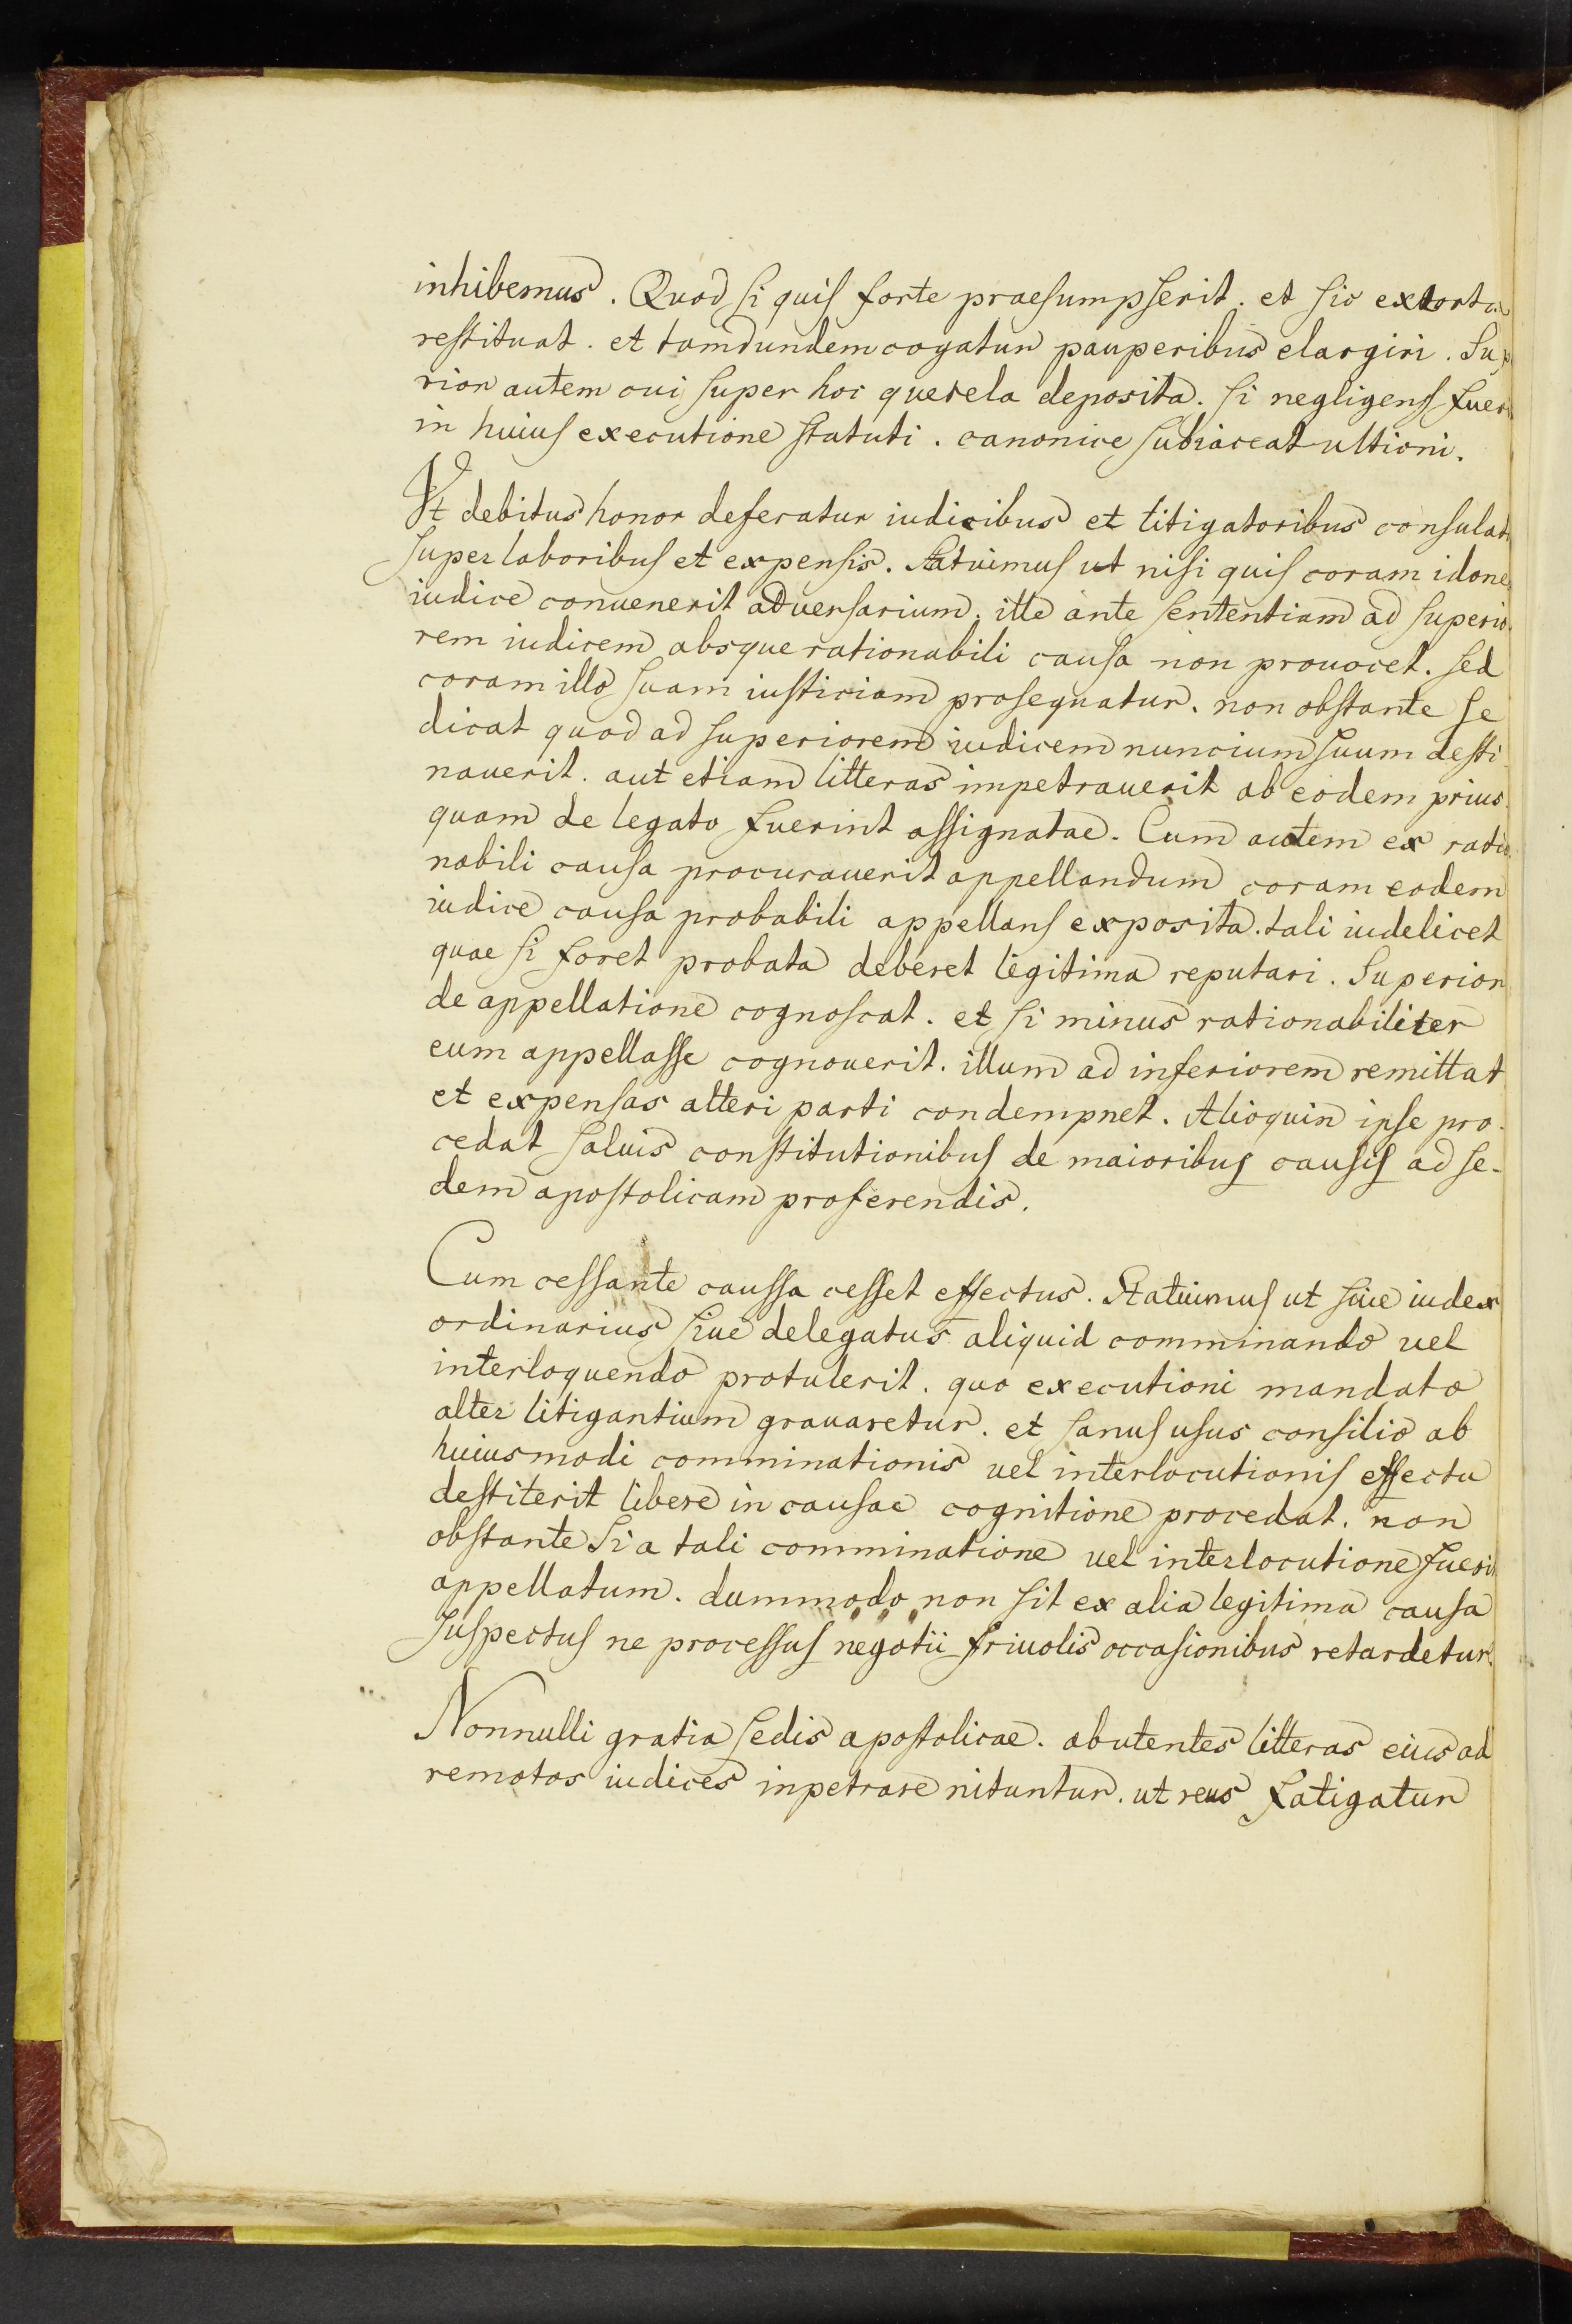 inhibemus. Quod si quis forte praesumpserit. et sic extorta
restituat. et tamdundem cogatur pauperibus elargiri. Sup
rior autem cui super hoc querela deposita. si negligens fuer
in huius executione statuti. canonice subiaceat ultioni.
Vt debitus honor deferatur iudicibus et litigatoribus consulat
super laboribus et expensis. Statuimus ut nisi quis coram idone
iudice conuenerit aduersarium. ille ante sententiam ad superio
rem iudicem absque rationabili causa non prouocet. sed
coram illo suam iusticiam prosequatur. non obstante se
dicat quod ad superiorem iudicem nuncium suum desti
nauerit. aut etiam litteras impetrauerit ab eodem prius
quam de legato fuerint assignatae. Cum autem ex ratio
nabili causa procurauerit appellandum coram eodem
iudice causa probabili appellans exposita. tali uidelicet
quae si foret probata deberet legitima reputari. Superior
de appellatione cognoscat. et si minus rationabiliter
eum appellasse cognouerit. illum ad inferiorem remittat
et expensas alteri parti condempnet. Alioquin ipse pro-
cedat saluis constitutionibus de maioribus causis ad se-
dem apostolicam proferendis.
Cum cessante caussa cesset effectus. Statuimus ut siue iudex
ordinarius siue delegatus aliquid comminando uel
interloquendo protulerit. quo executioni mandato
alter litigantium grauaretur. et sanus usus consilio ab
huiusmodi comminationis uel interlocutionis effectu
destiterit libere in causae cognitione procedat. non
obstante Si a tali comminatione uel interlocutione fueri
appellatum. dummodo non sit ex alia legitima causa
suspectus ne processus negotii friuolis occasionibus retardetur.
Nonnulli gratia sedis apostolicae. abutentes litteras eius ad
remotos iudices inpetrare nituntur. ut reus fatigatur